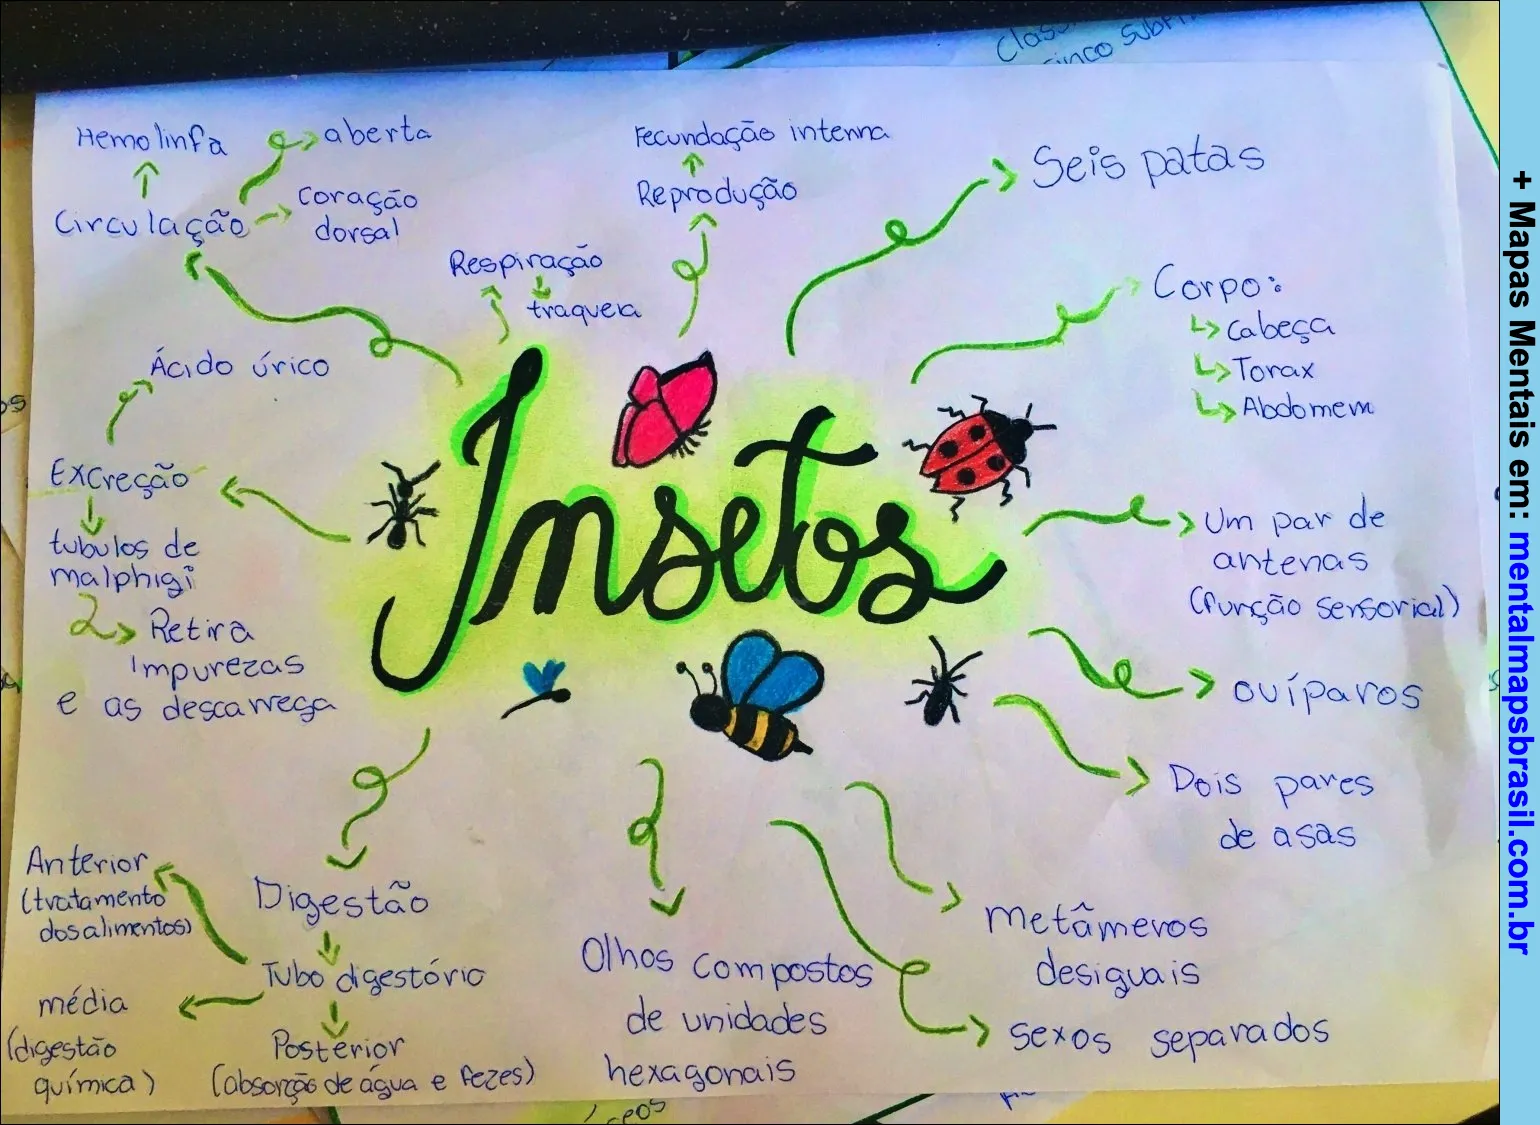 Insetos
Hemolinfa
aberta
Circulação
coração
dorsal
Respiração
traqueia
Fecundação interna
Reprodução
Seis patas
Corpo:
cabeça
Torax
Abdomem
Um par de
antenas
(função sensorial)
ovíparos
Dois pares
de asas
metâmeros
desiguais
sexos separados
Olhos compostos
de unidades
hexagonais
Digestão
Tubo digestório
Anterior
(tratamento
dos alimentos)
média
(digestão
química)
Posterior
(absorção de água e fezes)
Ácido úrico
Excreção
tubulos de
malphigi
Retira
impurezas
e as descarrega
cinco
+ Mapas Mentais em: mentalmapsbrasil.com.br